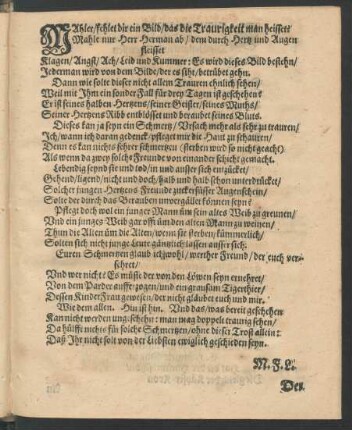 MAhler/fehlet dir ein Bild/das die Traurigkeit man heisset?
Mahle nur Herr Herman ab/ dem durch Hertz und Augen
fleisset
Klagen/ Angst/ Ach/ Leid und Kummer: Es wird dieses Bild bestehn/
Jederman wird von dem Bilde/der es siht/ betrübet gehn.
Dann wie solte dieser nicht allem Trauren ähnlich sehen/
Weil mit Ihm ein sonder Fall für drey Tagen ist geschehen?
Er ist seines halben Hertzens/seiner Geister/seines Muths/
Seiner Hertzens Ribb entblösset und beraubet seines Bluts.
Dieses kan ja seyn ein Schmertz/ Ursach mehr als sehr zu trauren/
Ich/wann ich daran gedenck/pfleget mir die Haut zu schauren/
Denn es kan nichts sehrer schmertzen (sterben wird so nicht geacht)
Als wenn da zwey solcht Freunde von einander scheiht gemacht.
Lebendig seyn
Gehend/ligend/nicht und doch/halb und halb schon unterdrücket/
Solcher jungen-Hertzens Freunde zuckersüsser Augenschein/
Solte der durch das Berauben unvergället können seyn?
Pflegt doch wol ein junger Mann üm sein altes Weib zu greinen/
Und ein junges Weib gar offt üm den alten Mann zu weinen/
Thun die Alten üm die Alten/wenn sie sterben/kümmerlich/
Solten sich nicht junge Leute gäntzlich lassen ausser sich:
Euren Schmertzen glaub ich wohl/ werther Freund/ der euch ver-
sehret/
Und wer nicht: Es müste der von den Löwen seyn ernehret/
Von dem Parder aufferzogen/und ein grausam Tigerthier/
Dessen KinderFrau gewesen/der nicht gläubet euch und mir.
Wie dem allen. Hin ist hin. Und das/was bereit geschehen
Kan nicht werden ungeschehn: man mag doppelt traurig sehen/
Da hülfft nichts für solche Schmertzen/ohne dieser Trost allein:
Daß Ihr nicht solt von der Liebsten ewiglich geschieden seyn.
M. F. L.
Der